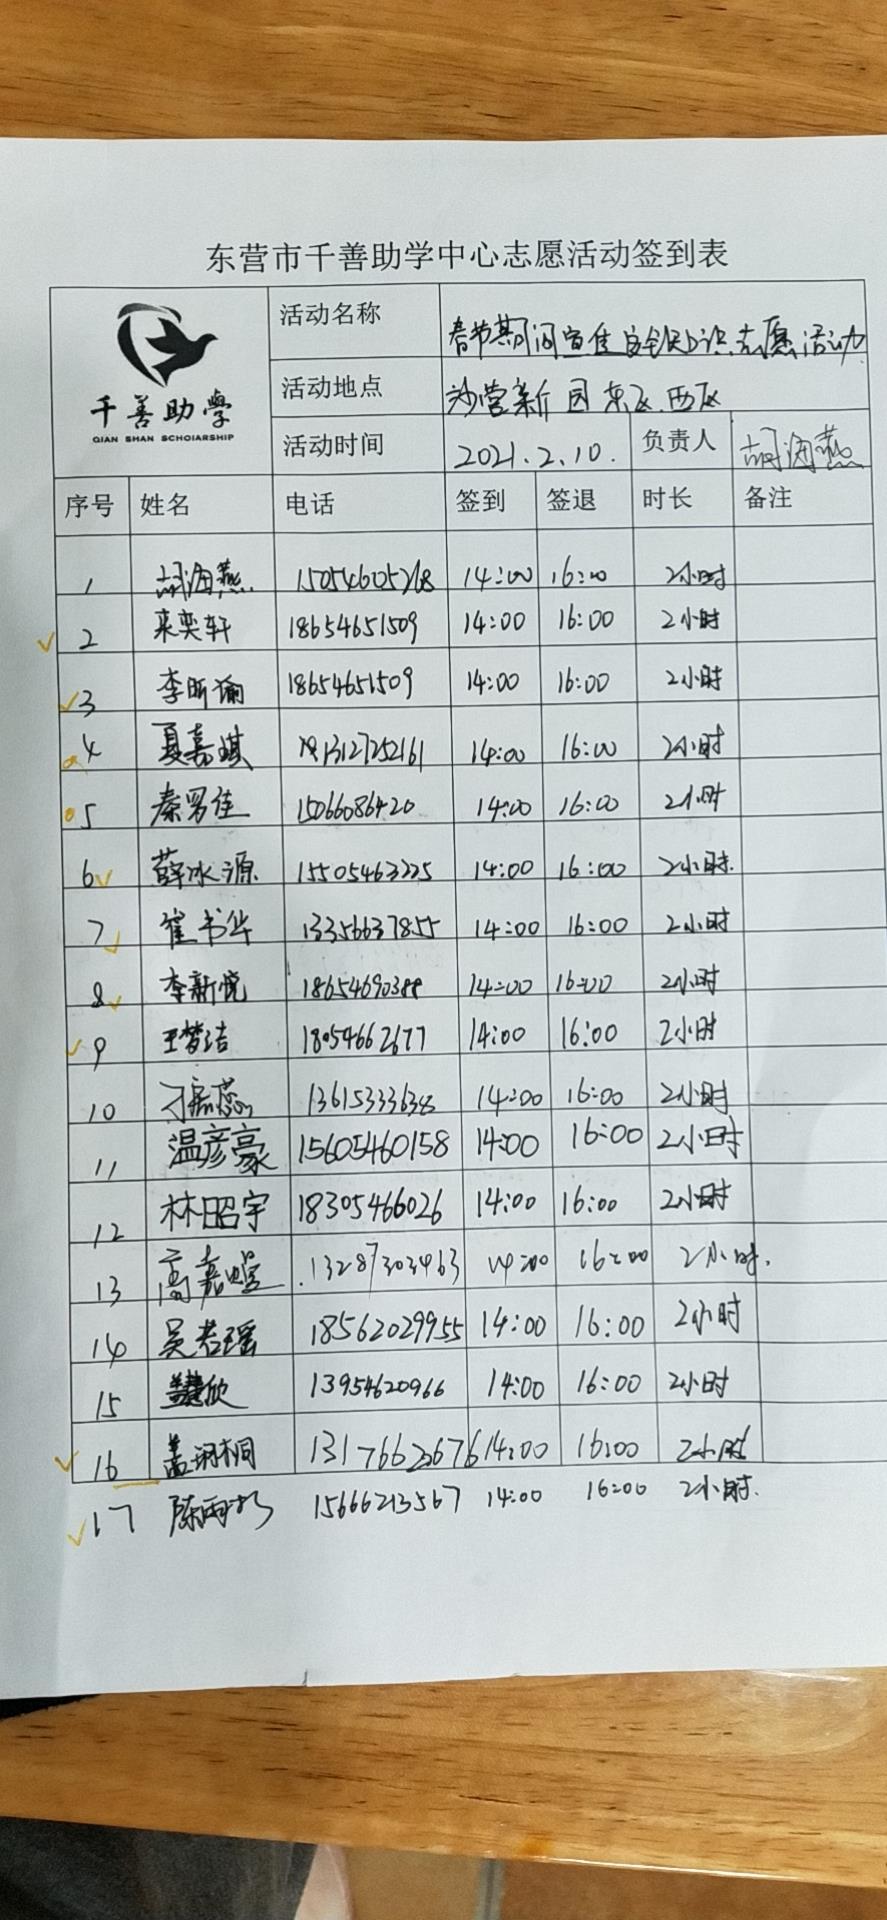 东营市千善助学中心志愿活动签到表
千善助学
QIAN SHAN SCHOIARSHIP
活动名称 春节期间宣传安全知识志愿活动
活动地点 沙营新园东区.西区
活动时间 2021.2.10. 负责人 胡海燕
序号 姓名 电话 签到 签退 时长 备注
1 胡海燕 15054605268 14:00 16:00 2小时
2 来奕轩 18654651509 14:00 16:00 2小时
3 李昕谕 18654651509 14:00 16:00 2小时
4 夏嘉琪 13127252161 14:00 16:00 2小时
5 秦男佳 15066086420 14:00 16:00 2小时
6 薛冰源 15505463225 14:00 16:00 2小时.
7 崔书华 13356637855 14:00 16:00 2小时
8 李新悦 18654690388 14:00 16:00 2小时
9 王梦洁 18054662677 14:00 16:00 2小时
10 13615333638 14:00 16:00 2小时
11 温彦豪 15605460158 14:00 16:00 2小时
12 林昭宇 18305466026 14:00 16:00 2小时
13 高嘉 13287303463 14:00 16:00 2小时.
14 吴若瑶 18562029955 14:00 16:00 2小时
15 欣 13954620966 14:00 16:00 2小时
16 盖桐 13176622676 14:00 16:00 2小时
17 陈雨 15666213567 14:00 16:00 2小时.